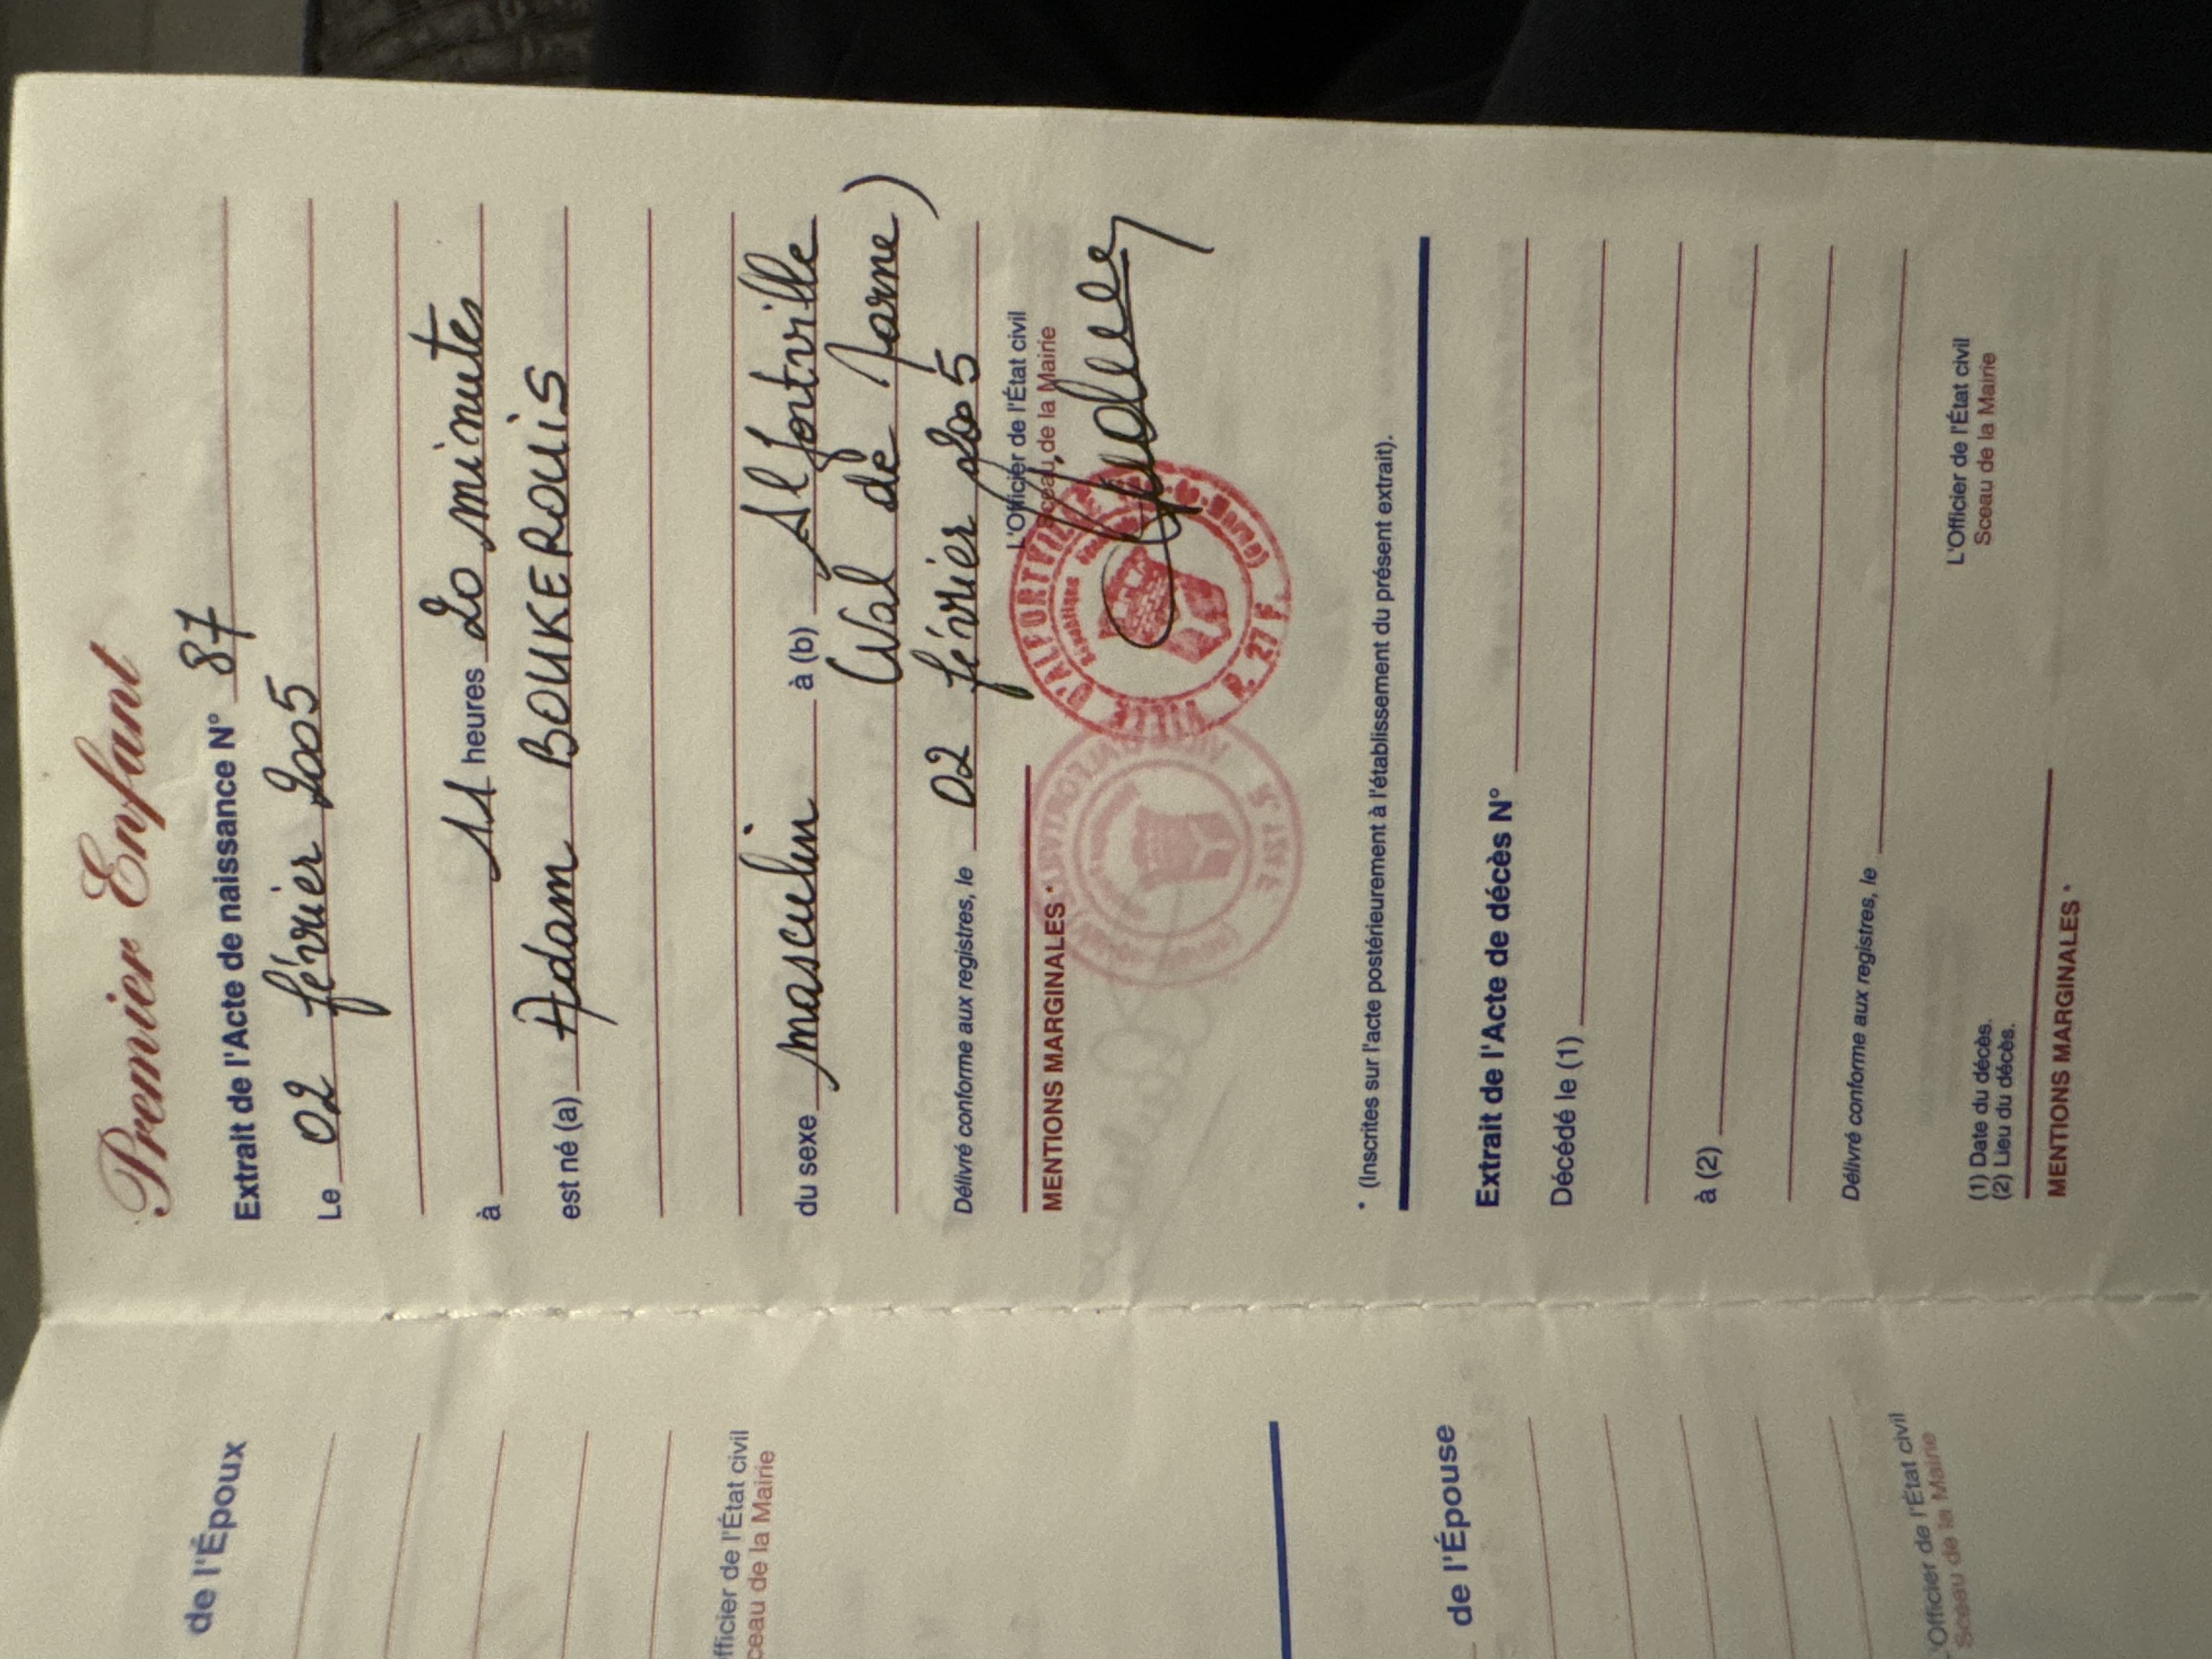 Premier Enfant
Extrait de l'Acte de naissance N° 87
Le 02 février 2005
à 11 heures 20 minutes
est né (a) Adam BOUKEROUIS
du sexe masculin à (b) Alfortville
(Val de Marne)
Délivré conforme aux registres, le 02 février 2005
L'Officier de l'État civil
Sceau de la Mairie
VILLE D'ALFORTVILLE
R. 27 F.
MENTIONS MARGINALES *
* (Inscrites sur l'acte postérieurement à l'établissement du présent extrait).
Extrait de l'Acte de décès N°
Décédé le (1)
à (2)
Délivré conforme aux registres, le
L'Officier de l'État civil
Sceau de la Mairie
(1) Date du décès.
(2) Lieu du décès.
MENTIONS MARGINALES *
de l'Époux
fficier de l'État civil
ceau de la Mairie
de l'Épouse
'Officier de l'État civil
Sceau de la Mairie